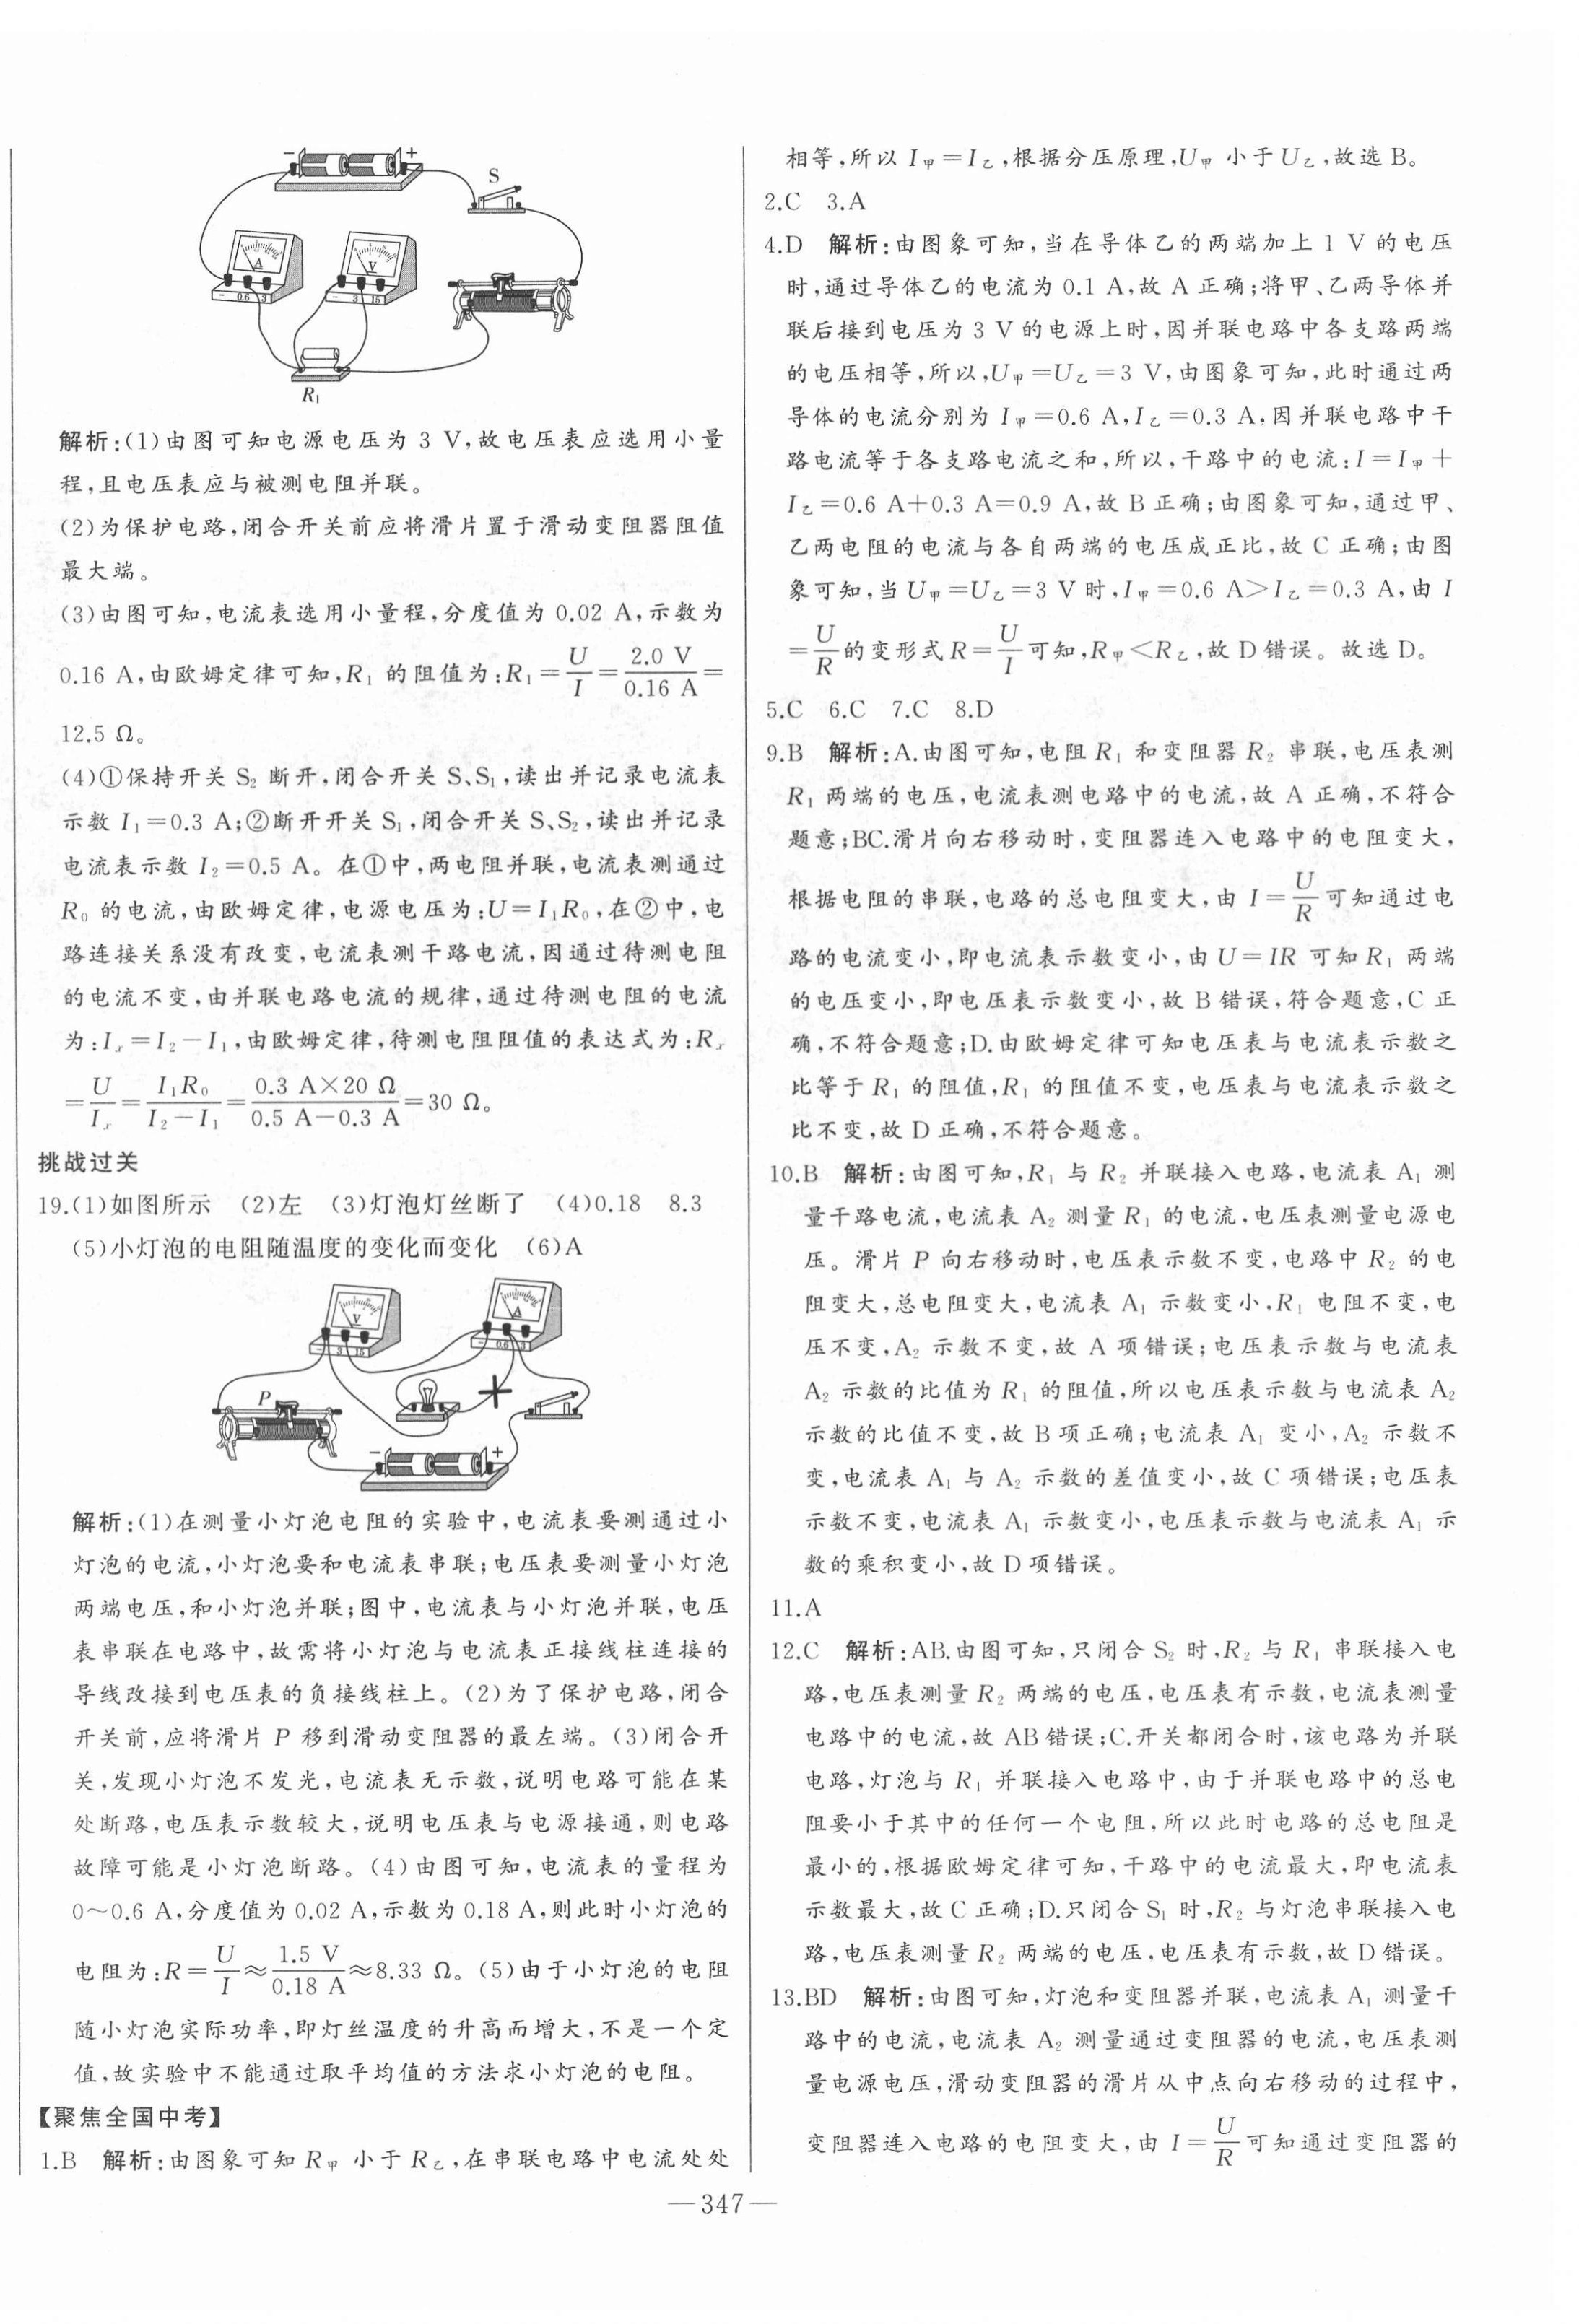 － ＋
S
A
－ 0.6 3
V
－ 3 15
R₁
解析:(1)由图可知电源电压为 3 V,故电压表应选用小量
程,且电压表应与被测电阻并联。
(2)为保护电路,闭合开关前应将滑片置于滑动变阻器阻值
最大端。
(3)由图可知,电流表选用小量程,分度值为 0.02 A,示数为
0.16 A,由欧姆定律可知,R₁ 的阻值为:R₁=U/I=2.0 V/0.16 A=
12.5 Ω。
(4)①保持开关 S₂ 断开,闭合开关 S、S₁,读出并记录电流表
示数 I₁=0.3 A;②断开开关 S₁,闭合开关 S、S₂,读出并记录
电流表示数 I₂=0.5 A。在①中,两电阻并联,电流表测通过
R₀ 的电流,由欧姆定律,电源电压为:U=I₁R₀,在②中,电
路连接关系没有改变,电流表测干路电流,因通过待测电阻
的电流不变,由并联电路电流的规律,通过待测电阻的电流
为:Iₓ=I₂-I₁,由欧姆定律,待测电阻阻值的表达式为:Rₓ
=U/Iₓ=I₁R₀/(I₂-I₁)=(0.3 A×20 Ω)/(0.5 A-0.3 A)=30 Ω。
挑战过关
19.(1)如图所示 (2)左 (3)灯泡灯丝断了 (4)0.18 8.3
(5)小灯泡的电阻随温度的变化而变化 (6)A
V
－ 3 15
A
－ 0.6 3
P
－ ＋
解析:(1)在测量小灯泡电阻的实验中,电流表要测通过小
灯泡的电流,小灯泡要和电流表串联;电压表要测量小灯泡
两端电压,和小灯泡并联;图中,电流表与小灯泡并联,电压
表串联在电路中,故需将小灯泡与电流表正接线柱连接的
导线改接到电压表的负接线柱上。(2)为了保护电路,闭合
开关前,应将滑片 P 移到滑动变阻器的最左端。(3)闭合开
关,发现小灯泡不发光,电流表无示数,说明电路可能在某
处断路,电压表示数较大,说明电压表与电源接通,则电路
故障可能是小灯泡断路。(4)由图可知,电流表的量程为
0～0.6 A,分度值为 0.02 A,示数为 0.18 A,则此时小灯泡的
电阻为:R=U/I≈1.5 V/0.18 A≈8.33 Ω。(5)由于小灯泡的电阻
随小灯泡实际功率,即灯丝温度的升高而增大,不是一个定
值,故实验中不能通过取平均值的方法求小灯泡的电阻。
【聚焦全国中考】
1.B 解析:由图象可知 R甲 小于 R乙,在串联电路中电流处处
相等,所以 I甲=I乙,根据分压原理,U甲 小于 U乙,故选 B。
2.C 3.A
4.D 解析:由图象可知,当在导体乙的两端加上 1 V 的电压
时,通过导体乙的电流为 0.1 A,故 A 正确;将甲、乙两导体并
联后接到电压为 3 V 的电源上时,因并联电路中各支路两端
的电压相等,所以,U甲=U乙=3 V,由图象可知,此时通过两
导体的电流分别为 I甲=0.6 A,I乙=0.3 A,因并联电路中干
路电流等于各支路电流之和,所以,干路中的电流:I=I甲+
I乙=0.6 A+0.3 A=0.9 A,故 B 正确;由图象可知,通过甲、
乙两电阻的电流与各自两端的电压成正比,故 C 正确;由图
象可知,当 U甲=U乙=3 V 时,I甲=0.6 A>I乙=0.3 A,由 I
=U/R的变形式 R=U/I可知,R甲<R乙,故 D 错误。故选 D。
5.C 6.C 7.C 8.D
9.B 解析:A.由图可知,电阻 R₁ 和变阻器 R₂ 串联,电压表测
R₁ 两端的电压,电流表测电路中的电流,故 A 正确,不符合
题意;BC.滑片向右移动时,变阻器连入电路中的电阻变大,
根据电阻的串联,电路的总电阻变大,由 I=U/R可知通过电
路的电流变小,即电流表示数变小,由 U=IR 可知 R₁ 两端
的电压变小,即电压表示数变小,故 B 错误,符合题意,C 正
确,不符合题意;D.由欧姆定律可知电压表与电流表示数之
比等于 R₁ 的阻值,R₁ 的阻值不变,电压表与电流表示数之
比不变,故 D 正确,不符合题意。
10.B 解析:由图可知,R₁ 与 R₂ 并联接入电路,电流表 A₁ 测
量干路电流,电流表 A₂ 测量 R₁ 的电流,电压表测量电源电
压。滑片 P 向右移动时,电压表示数不变,电路中 R₂ 的电
阻变大,总电阻变大,电流表 A₁ 示数变小,R₁ 电阻不变,电
压不变,A₂ 示数不变,故 A 项错误;电压表示数与电流表
A₂ 示数的比值为 R₁ 的阻值,所以电压表示数与电流表 A₂
示数的比值不变,故 B 项正确;电流表 A₁ 变小,A₂ 示数不
变,电流表 A₁ 与 A₂ 示数的差值变小,故 C 项错误;电压表
示数不变,电流表 A₁ 示数变小,电压表示数与电流表 A₁ 示
数的乘积变小,故 D 项错误。
11.A
12.C 解析:AB.由图可知,只闭合 S₂ 时,R₂ 与 R₁ 串联接入电
路,电压表测量 R₂ 两端的电压,电压表有示数,电流表测量
电路中的电流,故 AB 错误;C.开关都闭合时,该电路为并联
电路,灯泡与 R₁ 并联接入电路中,由于并联电路中的总电
阻要小于其中的任何一个电阻,所以此时电路的总电阻是
最小的,根据欧姆定律可知,干路中的电流最大,即电流表
示数最大,故 C 正确;D.只闭合 S₁ 时,R₂ 与灯泡串联接入电
路,电压表测量 R₂ 两端的电压,电压表有示数,故 D 错误。
13.BD 解析:由图可知,灯泡和变阻器并联,电流表 A₁ 测量干
路中的电流,电流表 A₂ 测量通过变阻器的电流,电压表测
量电源电压,滑动变阻器的滑片从中点向右移动的过程中,
变阻器连入电路的电阻变大,由 I=U/R可知通过变阻器的
— 347 —